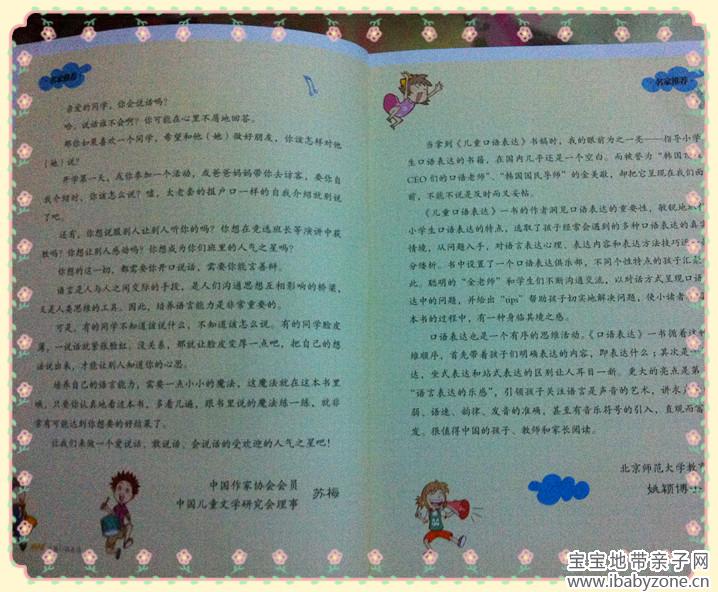 名家推荐
亲爱的同学，你会说话吗？
哈，说话谁不会啊？你可能在心里不屑地回答。
那你如果喜欢一个同学，希望和他（她）做好朋友，你该怎样对他
（她）说？
开学第一天，或你参加一个活动，或爸爸妈妈带你去访客，要你自
我介绍时，你该怎么说？嘘，太老套的报户口一样的自我介绍就别说
了吧。
还有，你想说服别人让别人听你的吗？你想在竞选班长等演讲中获
胜吗？你想让别人感动吗？你想成为你们班里的人气之星吗？
你想的这一切，都需要你开口说话，需要你能言善辩。
语言是人与人之间交际的手段，是人们沟通思想互相影响的桥梁，
又是人要思维的工具。因此，培养语言能力是非常重要的。
可是，有的同学不知道该说什么，不知道该怎么说。有的同学脸皮
薄，一说话就紧张脸红，没关系，那就让脸皮变厚一点吧，把自己的想
法说出来，才能让别人知道你的心思。
培养自己的语言能力，需要一点小小的魔法，这魔法就在这本书里
噢，只要你认真地看这本书，多看几遍，跟书里说的魔法练一练，就非
常有可能达到你想要的好结果了。
让我们来做一个爱说话、敢说话、会说话的受欢迎的人气之星吧！
中国作家协会会员
中国儿童文学研究会理事
苏梅
名家推荐
当拿到《儿童口语表达》书稿时，我的眼前为之一亮——指导小学
生口语表达的书籍，在国内几乎还是一个空白。而被誉为“韩国
CEO们的口语老师”、“韩国国民导师”的金美敬，却把它呈现在我们面
前，不能不说是及时而又妥帖。
《儿童口语表达》一书的作者洞见口语表达的重要性，敏锐地
小学生口语表达的特点，选取了孩子经常会遇到的多种口语表达的真
情境，从问题入手，对语言表达心理、表达内容和表达方法技巧
分缕析。书中设置了一个口语表达俱乐部，不同个性特点的孩子汇
此。聪明的“金老师”和学生们不断沟通交流，以对话方式呈现口
达中的问题，并给出“tips”帮助孩子切实地解决问题，使小读者
本书的过程中，有一种身临其境之感。
口语表达也是一个有序的思维活动。《口语表达》一书循着这
维顺序，首先带着孩子们明确表达的内容，即表达什么；其次是
达，坐式表达和站式表达的区别让人耳目一新。更大的亮点是第
“语言表达的乐感”，引领孩子关注语言是声音的艺术，讲求
弱、语速、韵律、发音的准确，甚至有音乐符号的引入，直观而
发。很值得中国的孩子、教师和家长阅读。
北京师范大学教
姚颖博士
宝宝地带亲子网
www.ibabyzone.cn